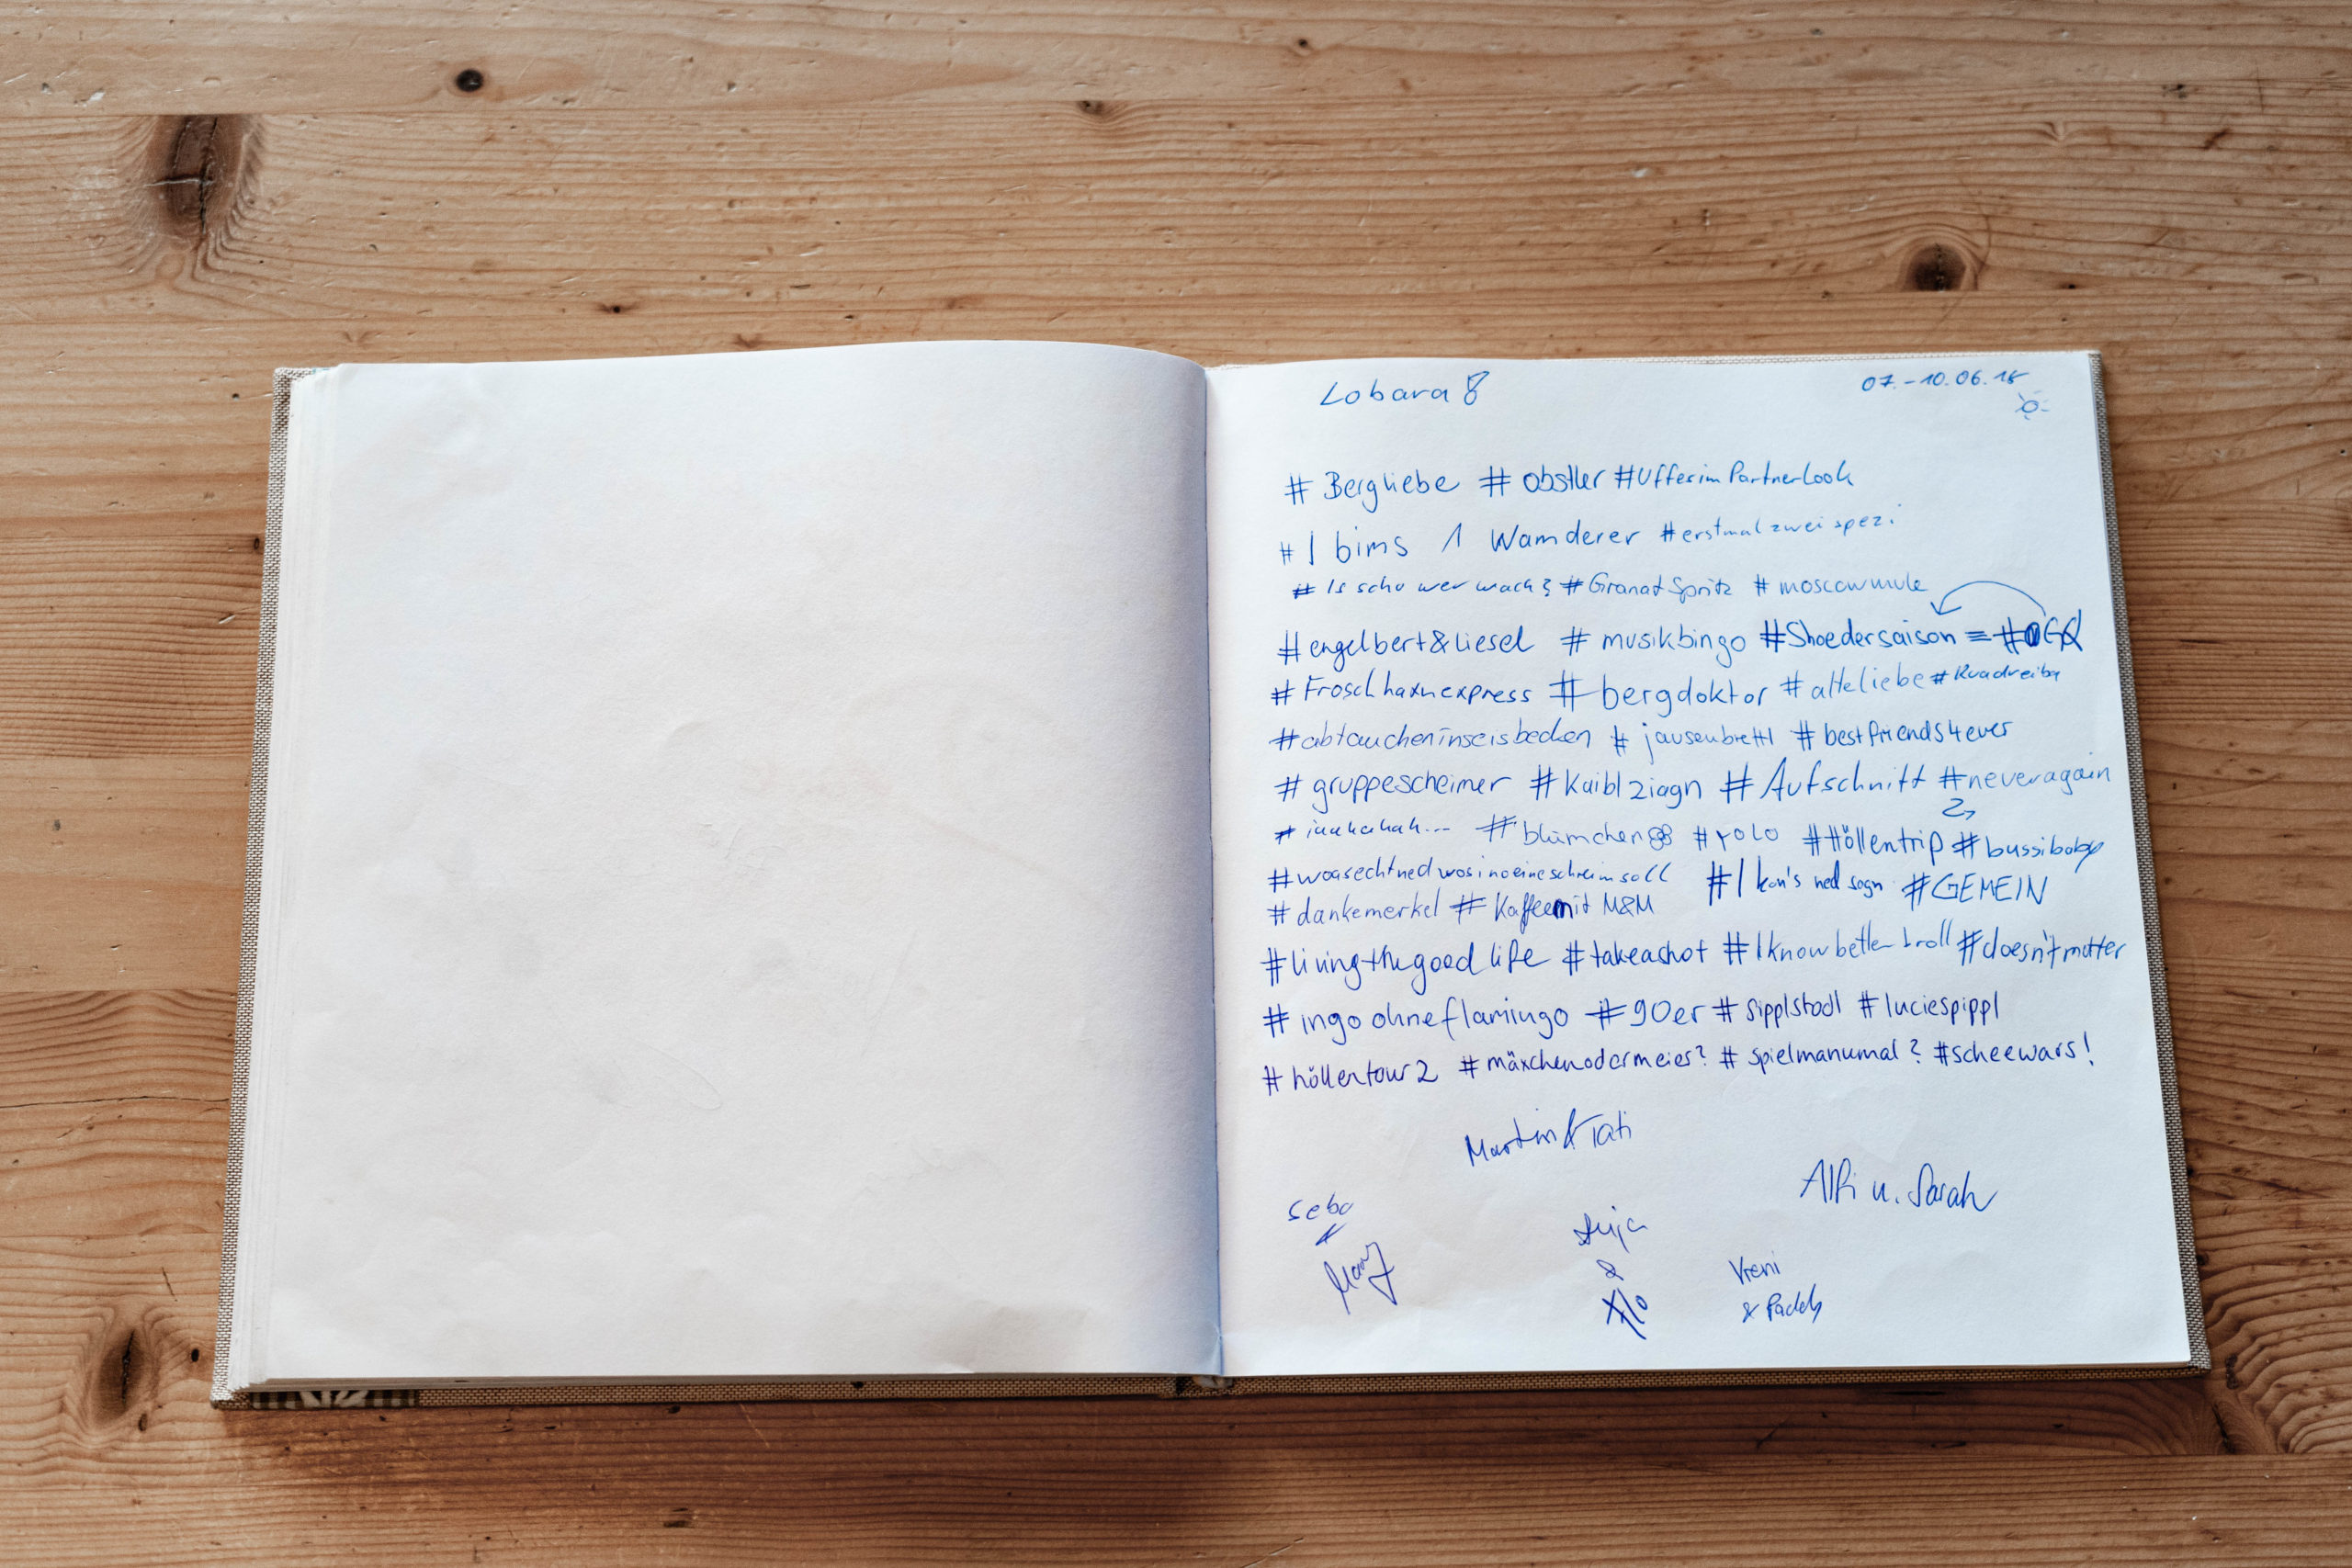 Lobara 8 07.-10.06.18
# Bergliebe # obstler #Ufferim Partnerlook
# I bims 1 Wamderer #erstmalzweispezi
# Is scho wer wach? # Granat Spritz # moscowmule
#engelbert&liesel # musikbingo #Shoedersaison =
# Froschhaxnexpress # bergdoktor # alteliebe # Kuadreiba
#abtaucheninseisbecken # jausenbrettl # bestfriends4ever
# gruppescheimer # Kaiblziagn # Aufschnitt #neveragain
# # blümchen # yolo #Höllentrip # bussibaby
#woasechtnedwosinoeineschreimsoll #I kon's ned sogn #GEMEIN
# dankemerkel # Kaffeemit M&M
#livingthegoodlife #takeashot #Iknowbetter troll #doesn'tmatter
# ingoohneflamingo #90er # sipplstodl # luciespippl
# höllentour2 # mäxchenodermeier? # spielmanumal? #scheewars!
Martin & Tati
Alfi u. Sarah
Seba
Vreni
& Paddy